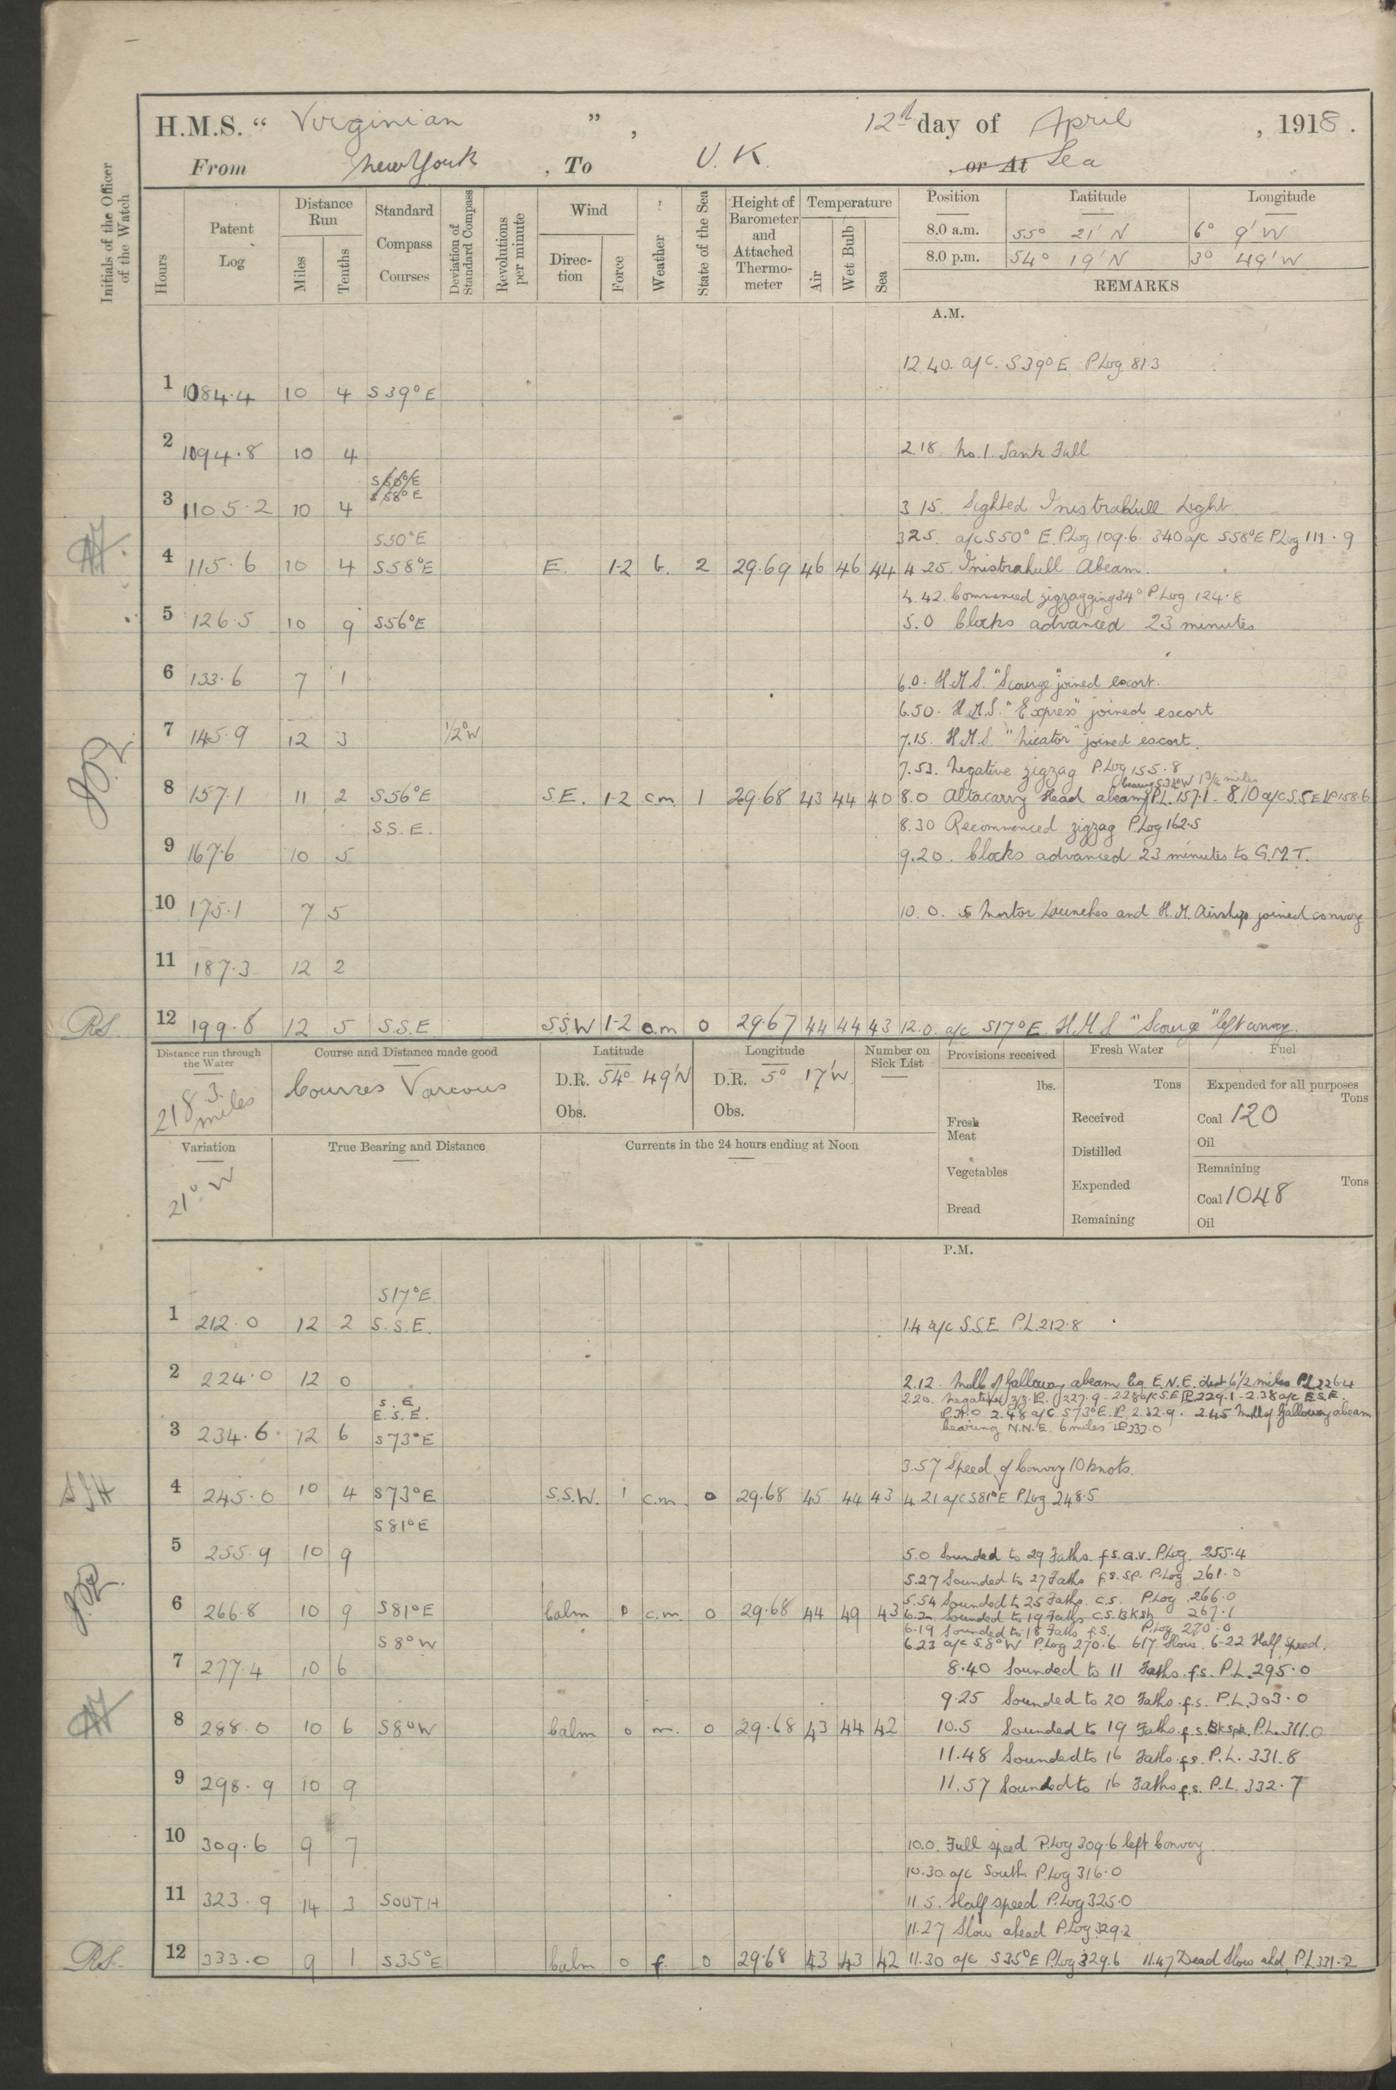 H.M.S. “ Virginian ” , 12th day of April , 1918 .
From New York , To U. K. or At Sea
Initials of the Officer of the Watch
Hours
Patent Log
Distance Run
Miles
Tenths
Standard Compass Courses
Deviation of Standard Compass
Revolutions per minute
Wind
Direction
Force
Weather
State of the Sea
Height of Barometer and Attached Thermometer
Temperature
Air
Wet Bulb
Sea
Position Latitude Longitude
8.0 a.m. 55° 21' N 6° 9' W
8.0 p.m. 54° 19' N 3° 49' W
REMARKS
A.M.
12.40. a/c. S39°E P.Log 81.3
1 1084.4 10 4 S39°E
2 1094.8 10 4 2.18 No.1 Tank Full
S58°E
3 1105.2 10 4 3 15. Sighted Inistrahull Light
S50°E 325. a/c S50° E. P.Log 109.6. 340 a/c S58°E P.Log 111.9
4 115.6 10 4 S58°E E. 1-2 b. 2 29.69 46 46 44 4 25. Inistrahull Abeam.
4.42. Commenced zigzagging 34° P.Log 124.8
5 126.5 10 9 S56°E 5.0 Clocks advanced 23 minutes
6 133.6 7 1 6.0. H.M.S. "Scourge" joined escort.
6.50. H.M.S. "Express" joined escort
7 145.9 12 3 1/2° W 7.15. H.M.S "Nicator" joined escort.
7.53. Negative zigzag P.Log 155.8
8 157.1 11 2 S56°E S.E. 1-2 c.m 1 29.68 43 44 40 8.0 Altacarry Head abeam P.L. 157.1. 8.10 a/c S.S.E P 158.6
SS.E. 8.30 Recommenced zigzag P.Log 162.5
9 167.6 10 5 9.20. Clocks advanced 23 minutes to G.M.T.
10 175.1 7 5 10. 0. 5 Motor Launches and H.M. Airship joined convoy
11 187.3 12 2
12 199.8 12 5 S.S.E S.S.W 1-2 c.m 0 29.67 44 44 43 12.0. a/c S17°E. H.M.S "Scourge" left convoy.
Distance run through the Water
218.3 miles
Course and Distance made good
Courses Various
Latitude
D.R. 54° 49' N
Obs.
Longitude
D.R. 5° 17' W
Obs.
Number on Sick List
Provisions received
lbs.
Fresh Meat
Vegetables
Bread
Fresh Water
Tons
Received
Distilled
Expended
Remaining
Fuel
Expended for all purposes
Tons
Coal 120
Oil
Remaining
Tons
Coal 1048
Oil
Variation
21° W
True Bearing and Distance
Currents in the 24 hours ending at Noon
P.M.
S17°E
1 212.0 12 2 S.S.E. 1.4 a/c S.S.E P.L. 212.8
2 224.0 12 0 2.12. Mull of Galloway abeam Bg E.N.E. dist 6 1/2 miles P.L 226.4
S.E. 2.20. Negative 227.9. 228 a/c S.E 229.1 - 2.38 a/c E.S.E.
E.S.E. 2.48 a/c S73°E. 232.9. 2.45 Mull of Galloway abeam
3 234.6 12 6 S73°E bearing N.N.E. 6 miles 233.0
3.57 Speed of Convoy 10 knots.
4 245.0 10 4 S73°E S.S.W. 1 c.m. 0 29.68 45 44 43 4.21 a/c S81°E P.Log 248.5
S81°E
5 255.9 10 9 5.0 Sounded to 29 Faths. f.s.a.v. P.Log. 255.4
5.27 Sounded to 27 Faths f.s.sp. P.Log 261.0
5.54 Sounded to 25 Faths. c.s. P.Log 266.0
6 266.8 10 9 S81°E Calm 0 c.m. 0 29.68 44 49 43 Sounded to 19 Faths c.s.Bksh 267.1
6.19 Sounded to 18 Faths f.s. P.Log 270.0
S8°W 6.23 a/c S.8°W P.Log 270.6. 617 Slow. 6-22 Half speed.
7 277.4 10 6 8.40 Sounded to 11 Faths. f.s. P.L. 295.0
9.25 Sounded to 20 Faths. f.s. P.L. 303.0
8 288.0 10 6 S8°W Calm 0 m. 0 29.68 43 44 42 10.5 Sounded to 19 Faths. f.s.Bkspk. P.L. 311.0
11.48 Sounded to 16 Faths. f.s. P.L. 331.8
9 298.9 10 9 11.57 Sounded to 16 Faths f.s. P.L. 332.7
10 309.6 9 7 10.0. Full speed P.Log 309.6 left Convoy
10.30 a/c South P.Log 316.0
11 323.9 14 3 SOUTH 11.5. Half speed P.Log 325.0
11.27 Slow ahead P.Log 329.2
12 333.0 9 1 S35°E Calm 0 f. 0 29.68 43 43 42 11.30 a/c S35°E P.Log 329.6 11.47 Dead Slow ahd. P.L. 331.2